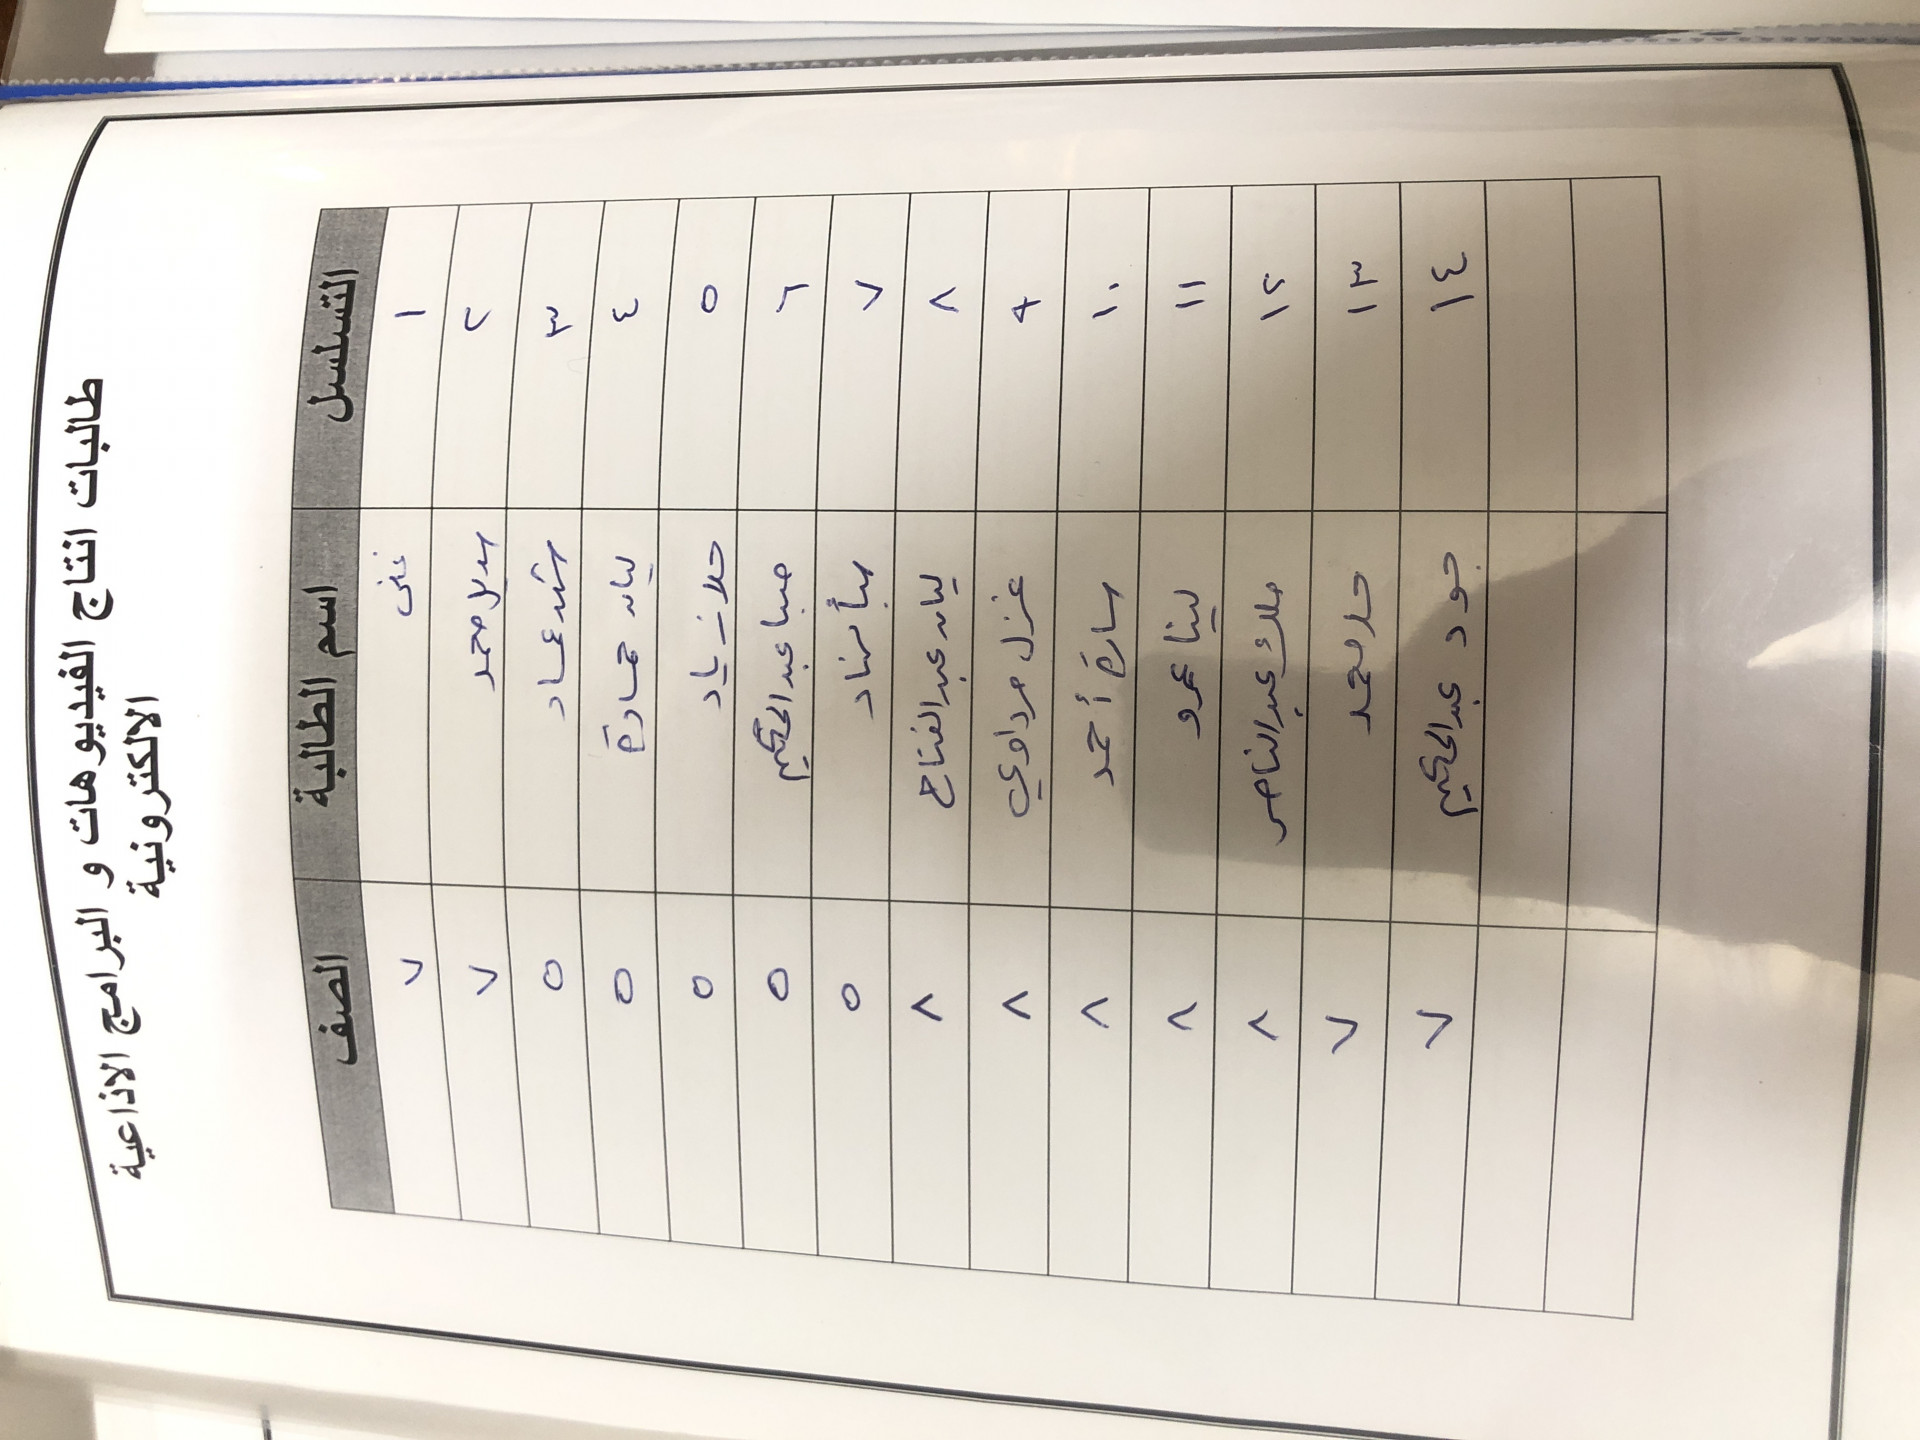 طالبات انتاج الفيديوهات و البرامج الاذاعية
الالكترونية
التسلسل اسم الطالبة الصف
١ ٧
٢ محمد ٧
٣ عماد ٥
٤ ليان حمادة ٥
٥ حلا زياد ٥
٦ صبا عبدالحكيم ٥
٧ ٥
٨ ليان عبدالفتاح ٨
٩ غزل مرداوي ٨
١٠ سارة أحمد ٨
١١ لينا عمرو ٨
١٢ ملاك عبدالناصر ٨
١٣ حلا محمد ٧
١٤ جود عبدالحكيم ٧